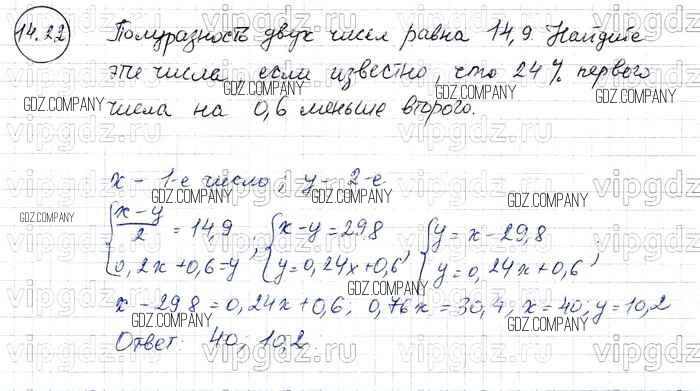 14.22 Полуразность двух чисел равна 14,9. Найдите
эти числа, если известно, что 24% первого
GDZ.COMPANY GDZ.COMPANY GDZ.COMPANY
числа на 0,6 меньше второго.
vipgdz.ru vipgdz.ru vipgdz.ru
x - 1-е число; y - 2-е
GDZ.COMPANY GDZ.COMPANY GDZ.COMPANY
{ (x-y)/2 = 14,9 ; { x-y=29,8 ; { y = x-29,8
{ 0,2x+0,6=y ; { y=0,24x+0,6 ; { y=0,24x+0,6 ;
GDZ.COMPANY GDZ.COMPANY
x - 29,8 = 0,24x+0,6; 0,76x = 30,4, x = 40; y = 10,2
GDZ.COMPANY GDZ.COMPANY GDZ.COMPANY
Ответ: 40; 10,2
vipgdz.ru vipgdz.ru vipgdz.ru